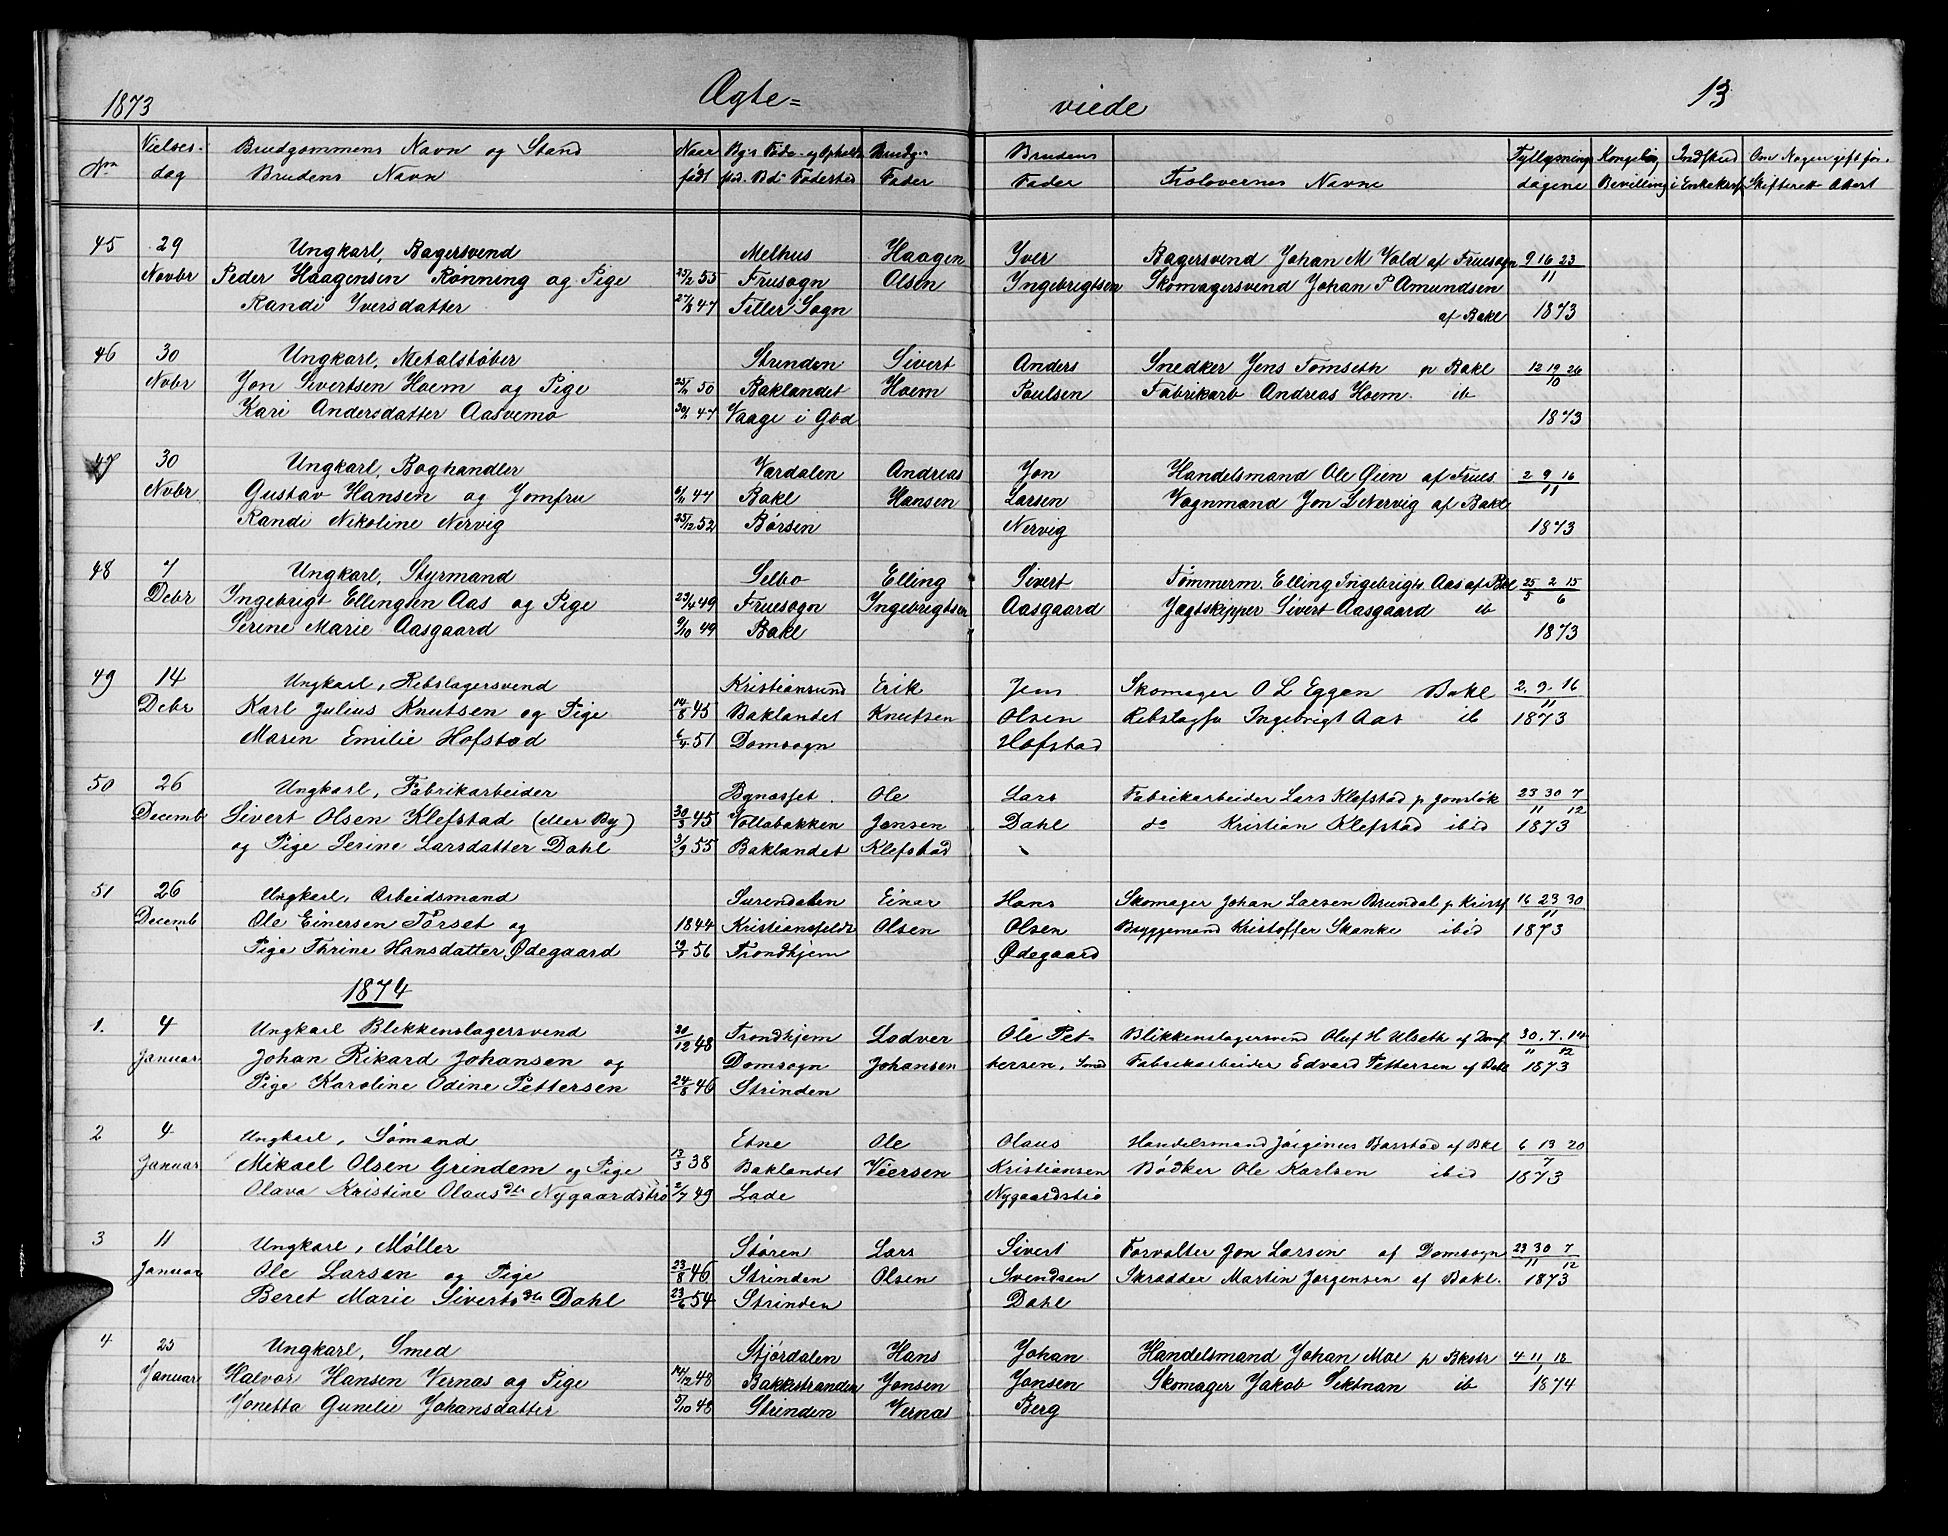 1873 Ægte= viede 13
No Vielses- Brudgommens Navn og Stand Naar Bg's Føde- og Opholds Brudg's Brudens Tyllysning Kongelig Indskud Om Nogen gift før.
dag Brudens Navn født sted. Bd's Fødested Fader Fader Trolovernes Navne dagene Bevilling i Enkekasse Skifteret Attest
45 29 Ungkarl, Bagersvend Melhus Haagen Yver Bagersvend Johan M Vold af Fruesogn 9 16 23
Novbr Peder Haagensen Rønning og Pige 25/2 53 Fruesogn Olsen Ingebrigtsen Skomagersvend Johan P Amundsen 11
Randi Iversdatter 47 Tiller Sogn af Bakl 1873
46 30 Ungkarl, Metalstøber Strinden Sivert Anders Snedker Jens Tomseth p Bakl 12 19 26
Nvbr Jon Sivertsen Hoem og Pige 50 Baklandet Hoem Poulsen Fabrikarb Andreas Hoem. ib 10
Kari Andersdatter Aasvemo 47 Vaage i Gbd 1873
47 30 Ungkarl, Boghandler Værdalen Andreas Jon Handelsmand Ole Øien af Frues 2 9 16
Novbr. Gustav Hansen og Jomfru 6/11 47 Bakl Hansen Larsen Vognmand Jon L Nervig af Bakl 11
Randi Nikoline Nervig 25/12 52 Børsen Nervig 1873
48 7 Ungkarl, Styrmand Selbo Elling Sivert Tømmerm. Elling Ingebrigts Aas af Bkl 25 2 15
Debr Ingebrigt Ellingsen Aas og Pige 29/4 49 Fruesogn Ingebrigtsen Aasgaard Jagtskipper Sivert Aasgaard ib 5 6
Serine Marie Aasgaard 9/10 49 Bakl 1873
49 14 Ungkarl, Rebslagersvend Kristiansund Erik Jens Skomager O L Eggen Bakl 2. 9. 16
Debr Karl Julius Knutsen og Pige 14/8 45 Baklandet Knutsen Olsen Rebslagsv Ingebrigt Aas ib 11 1873
Maren Emilie Hofstad 6/4 51 Domsogn Hofstad
50 26 Ungkarl, Fabrikarbeider Bynæsset. Ole Lars Fabrikarbeider Lars Klefstad p Jonsløk 23 30 7
Decemb Sivert Olsen Klefstad (eller By) 30/3 45 Vollabakken Jonsen Dahl do Kristian Klefstad ibid 11 12 1873
og Pige Serine Larsdatter Dahl 3/9 55 Baklandet Klefstad
51 26 Ungkarl, Arbeidsmand Surendalen Einar Hans Skomager Johan Larsen Brundal p Kristf 16 23 30
Decemb Ole Einersen Torset og 1844 Kristiansfeldt Olsen Olsen Byggemand Kristoffer Skanke ibid 11 1873
Pige Thrine Hansdatter Ødegaard 56 Trondhjem Ødegaard
1874
1. 4 Ungkarl Blikkenslagersvend 20/12 48 Trondhjem Lodver Ole Pet- Blikkenslagersvend Oluf H Ulseth af Doms 30. 7. 14
Januar Johan Rikard Johansen og Domsogn Johansen tersen, Smed Fabrikarbeider Edvard Pettersen af Bakl 11 12 1873
Pige Karoline Odine Pettersen 24/8 46 Strinden
2 4 Ungkarl, Sømand Etne Ole Olaus Handelsmand Jørginus Barstad af Bkl 6 13 20
Januar Mikael Olsen Grindem og Pige 13/3 38 Baklandet Veersen Kristiansen Bødker Ole Karlsen ibid 7 1873
Olava Kristine Olausdtr Nygaardstrø 2/7 49 Lade Nygaardstrø
3 11 Ungkarl, Møller Støren Lars Sivert Forvalter Jon Larsen af Domsogn 23 30 7
Januar Ole Larsen og Pige 23/8 46 Strinden Olsen Svendsen Skrædder Martin Jørgensen af Bakl. 11 12 1873
Beret Marie Siverts dtr Dahl 23/6 54 Strinden Dahl
4 25 Ungkarl, Smed Stjørdalen Hans Johan Handelsmand Johan Moe p Bkstr 4 11 18
Januar Halvor Hansen Vernæs og Pige 14/12 48 Bakkestranden Jonsen Jonsen Skomager Jakob Sektnan ib 1 1874
Jonetta Gunelie Johansdatter 5/10 48 Strinden Vernæs Berg